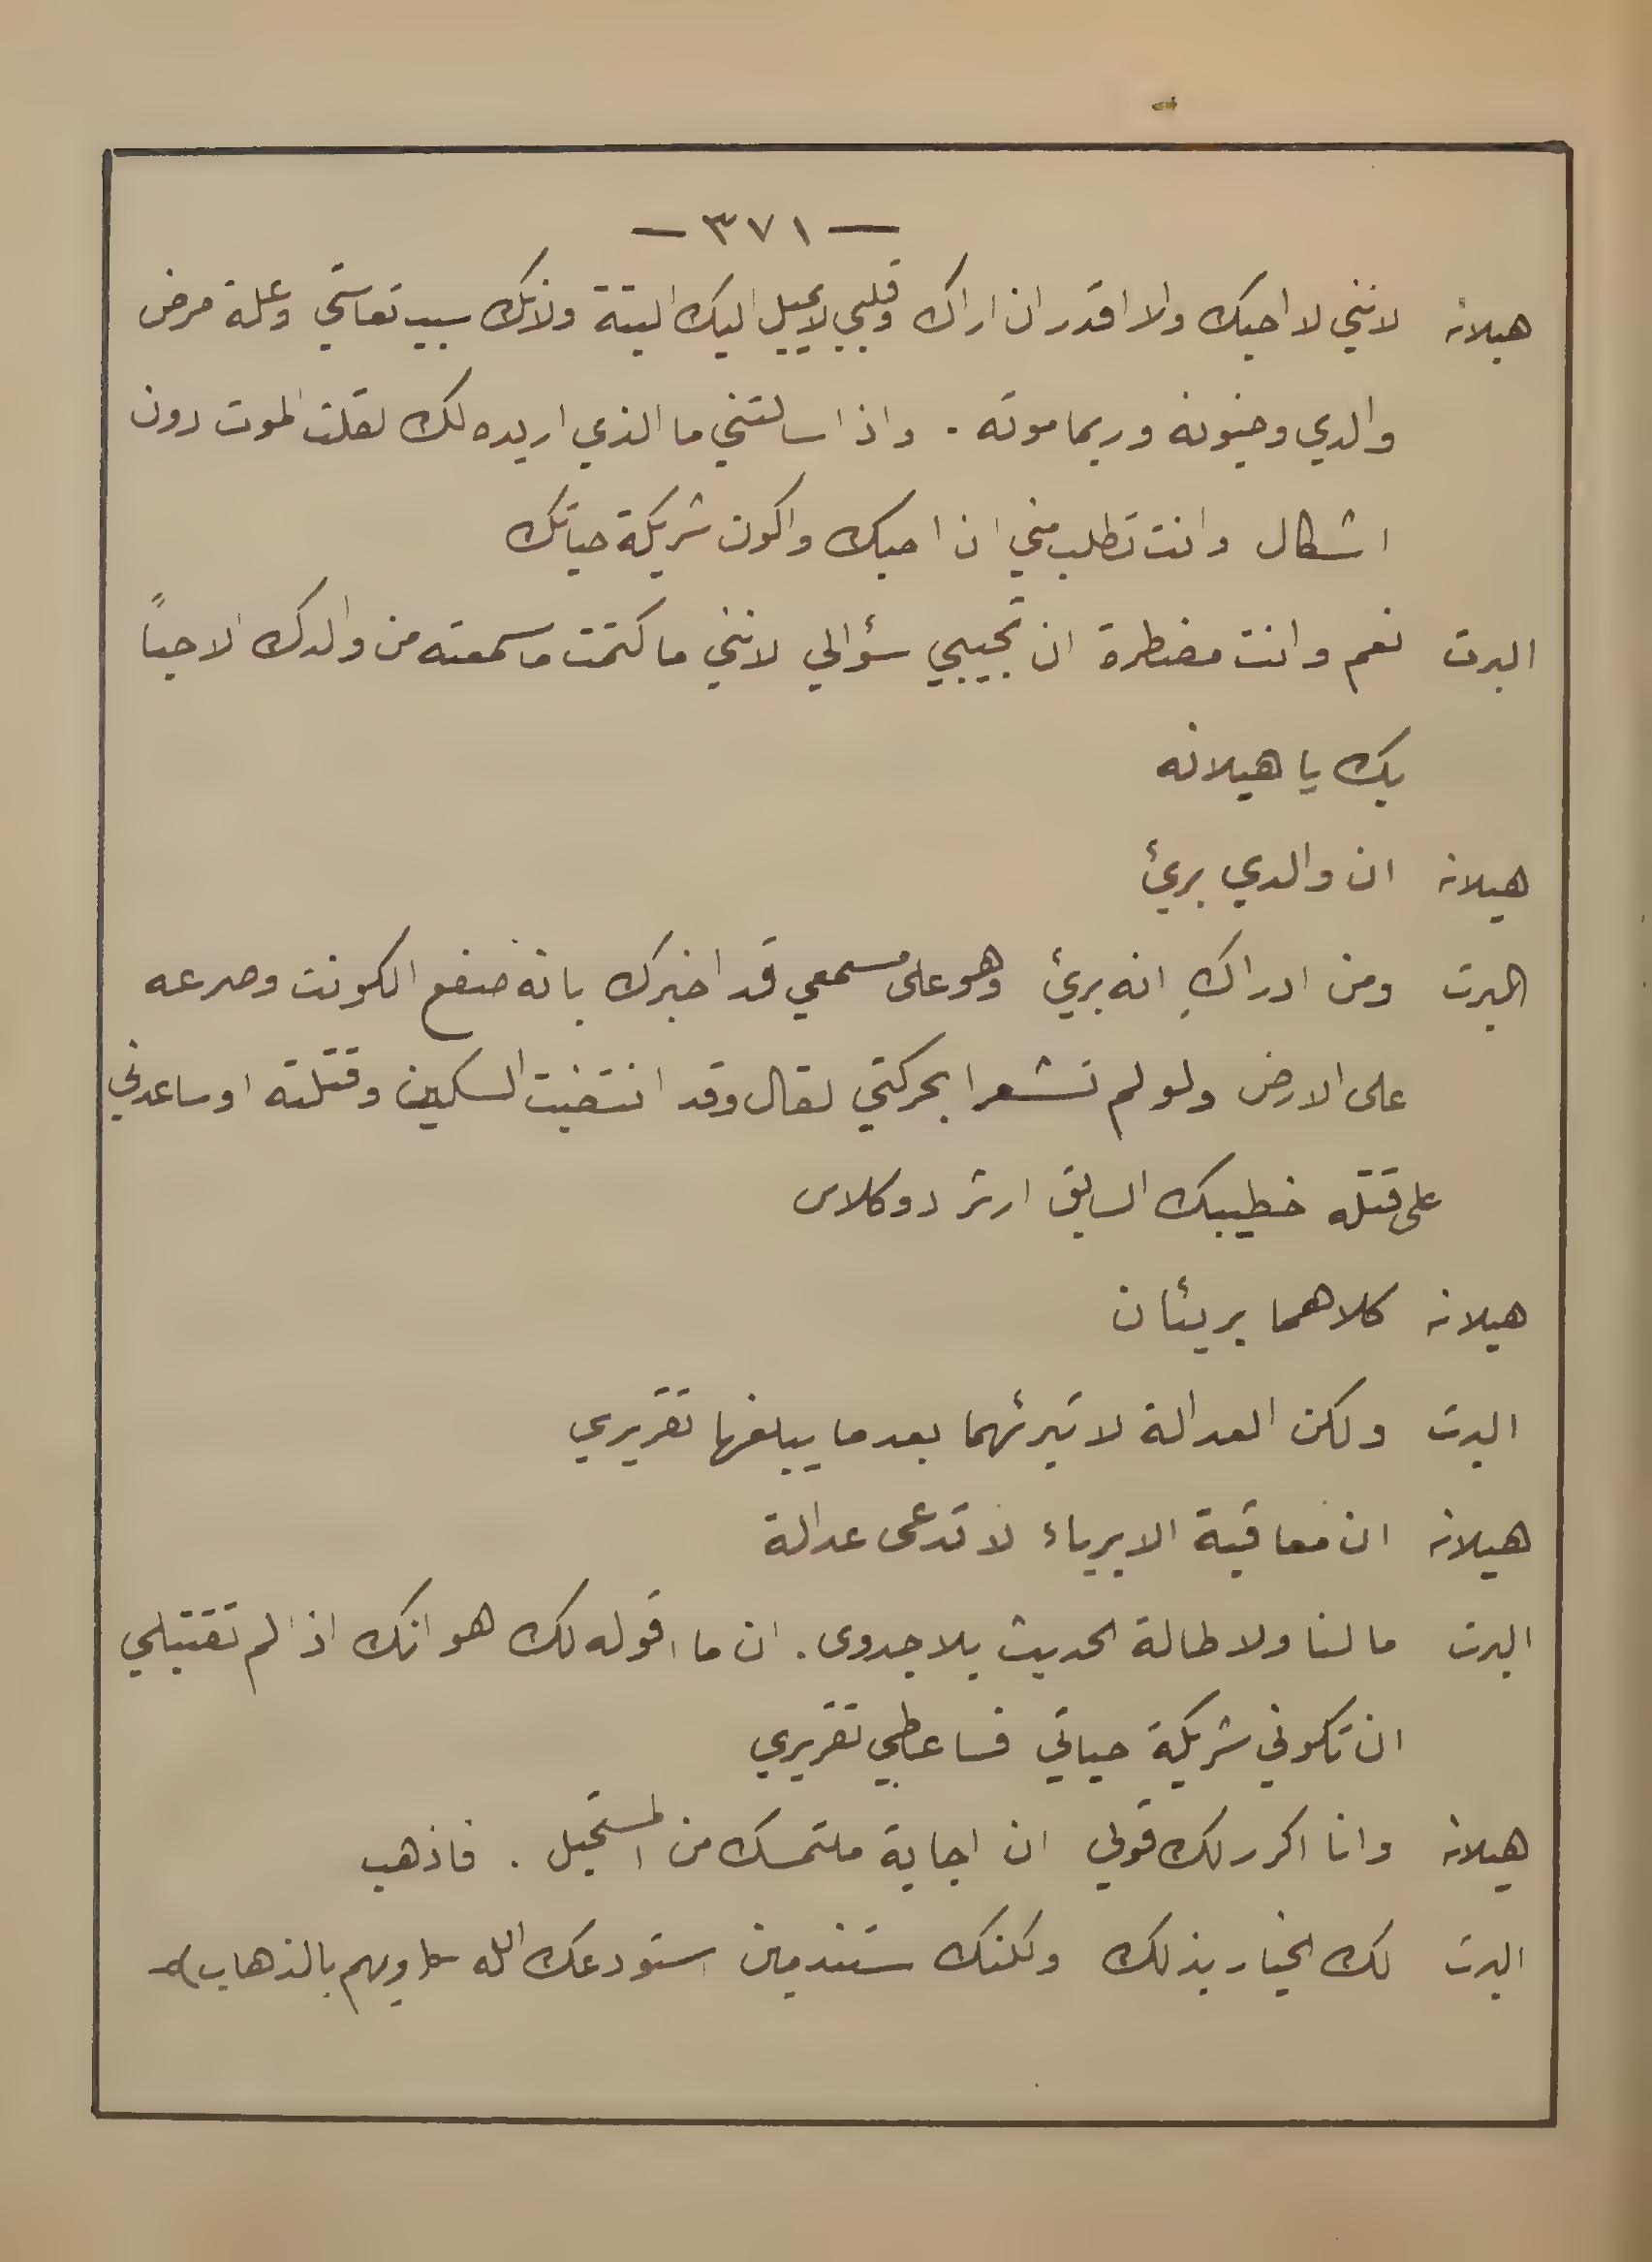 — ٣٧١ —
هيلانه لانني لا احبك ولا اقدر ان اراك وقلبي لا يميل اليك البتة ولانك سبب تعاستي وعلة مرض
والدي وجنونه وربما موته . واذا سالتني ما الذي اريده لك لقلت الموت دون
اشكال وانت تطلب مني ان احبك واكون شريكة حياتك
البرت نعم وانت مضطرة ان تجيبي سؤالي لانني ما كتمت ما سمعته من والدك الا حباً
بك يا هيلانه
هيلانه ان والدي بريئ
البرت ومن ادراكِ انه بريئ وهو على مسمعي قد اخبرك بانه صفع الكونت وصرعه
على الارض ولو لم تشعرا بحركتي لقال وقد انتخبت السكين وقتلته او ساعدني
على قتله خطيبك السابق ارثر دوكلاس
هيلانه كلاهما بريئان
البرت ولكن العدالة لا تبرئهما بعد ما يبلغها تقريري
هيلانه ان معاقبة الابرياء لا تدعى عدالة
البرت ما لنا ولاطالة الحديث بلا جدوى . ان ما اقوله لك هو انك اذا لم تقبلي
ان تكوني شريكة حياتي فساعطي تقريري
هيلانه وانا اكرر لك قولي ان اجابة ملتمسك من المستحيل . فاذهب
البرت لك الخيار بذلك ولكنك ستندمين استودعك الله (ويهم بالذهاب)